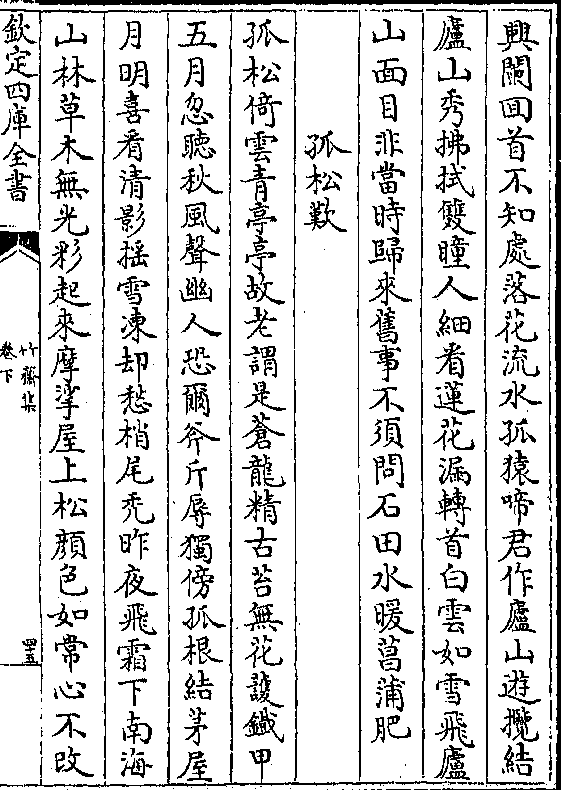 興闌囬首不知處落花流水孤猿啼君作廬山遊攬結
廬山秀拂拭雙瞳人細看蓮花漏轉首白雲如雪飛廬
山面目非當時歸來舊事不須問石田水暖菖蒲肥
孤松歎
孤松倚雲青亭亭故老謂是蒼龍精古苔無花護鐵甲
五月忽聽秋風聲幽人恐爾斧斤辱獨傍孤根結茅屋
月明喜看清影搖雪凍却愁梢尾禿昨夜飛霜下南海
山林草木無光彩起來摩挲屋上松顔色如常心不改
欽定四庫全書
竹齋集
卷下
四十五